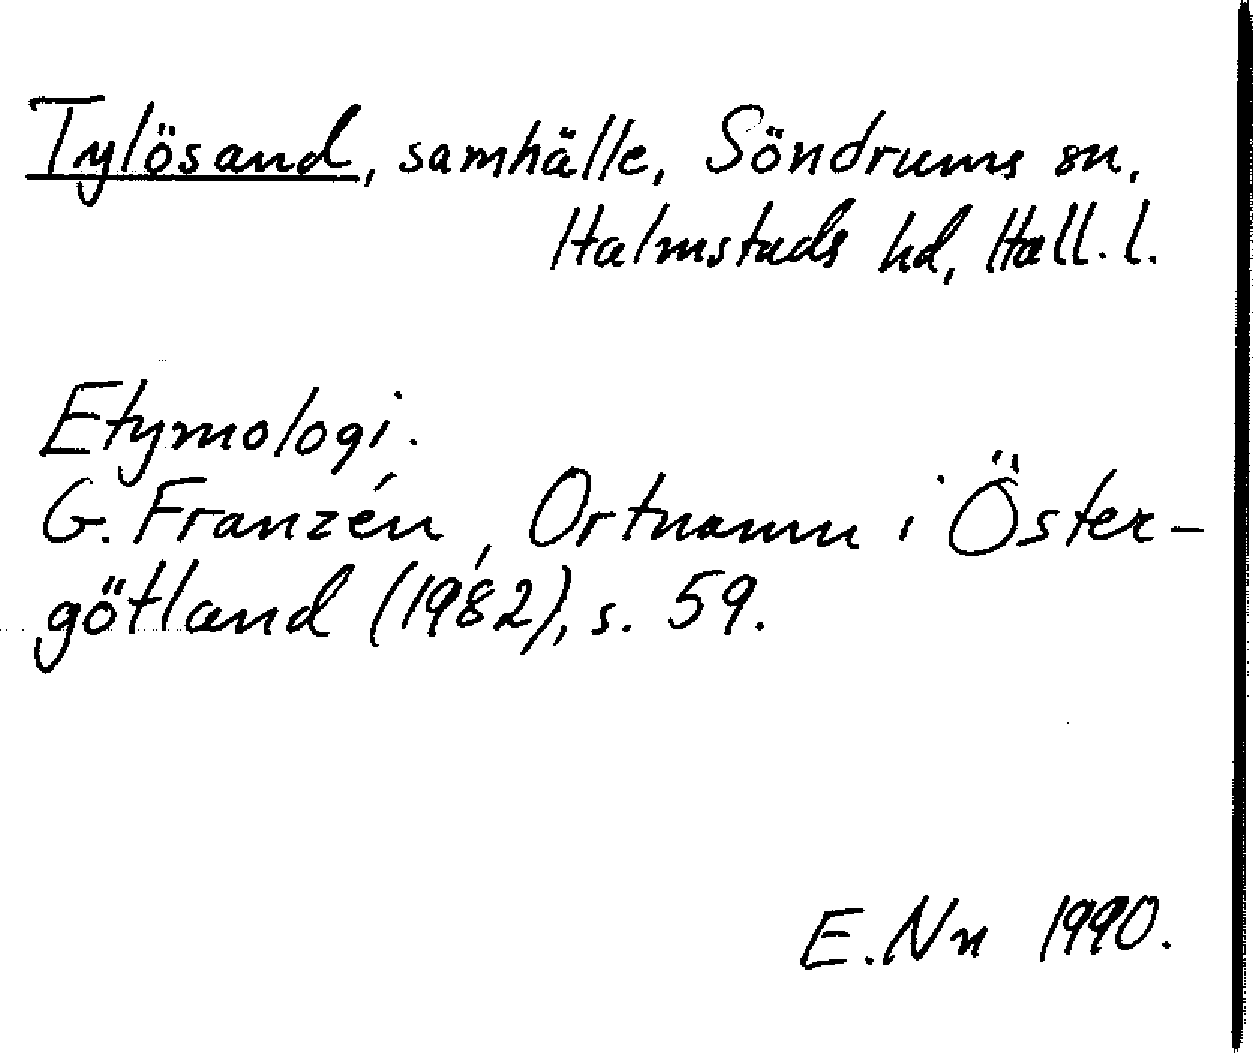 Tylösand, samhälle, Söndrums sn,
Halmstads hd, Hall. l.
Etymologi.
G. Franzén, Ortnamn i Öster-
götland (1982), s. 59.
E. Nn 1990.